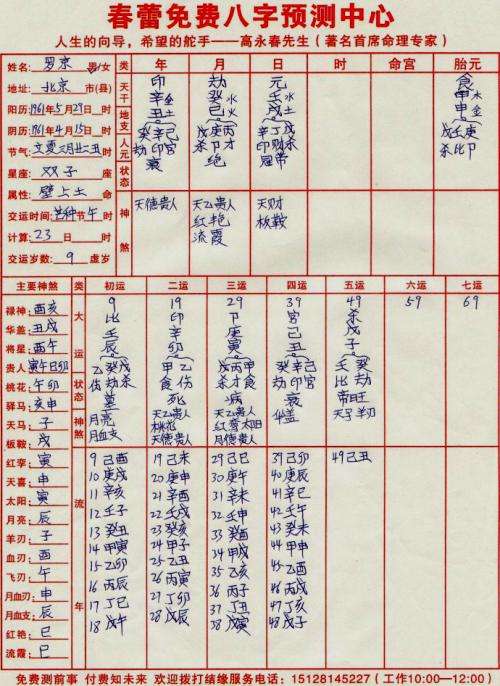 春蕾免费八字预测中心
人生的向导，希望的舵手——高永春先生（著名首席命理专家）
姓名: 罗京 男/女 类 年 月 日 时 命宫 胎元
地址: 北京 市(县)
阳历: 1961年5月29日 时
阴历: 1961年4月15日 时
节气: 立夏
星座: 双子 座
属性: 壁上土 命
交运时间: 芒种节午 时
计算: 23 日 时
交运岁数: 9 虚岁
天干 印 劫 元 食
辛金 癸水 壬水 甲木
地支 丑土 巳火 戌土 申金
人元 癸辛己 戊庚丙 辛丁戊 戊壬庚
劫印官 杀卩才 印财杀 杀比卩
状态 衰 绝 冠带
神煞 天德贵人 天乙贵人 天财
红艳 板鞍
流霞
主要神煞 类 初运 二运 三运 四运 五运 六运 七运
禄神: 酉亥
华盖: 丑戌
将星: 酉午
贵人: 寅午巳卯
桃花: 午卯
驿马: 亥申
天马: 子
板鞍: 戌
红鸾: 寅
天喜: 申
太阳: 寅
月亮: 辰
羊刃: 子
血刃: 酉
飞刃: 午
月血刃: 申
月血支: 辰
红艳: 巳
流霞: 巳
大运 9 19 29 39 49 59 69
比 印 卩 官 杀
壬 辛 庚 己 戊
辰 卯 寅 丑 子
乙癸戊 甲乙 戊丙甲 癸辛己 壬癸
伤劫杀 食伤 杀才食 劫印官 比劫
状态 墓 死 病 衰 帝旺
神煞 月亮 天乙贵人 天乙贵人 华盖 天子羊刃
月血支 桃花 红鸾太阳
天德贵人 月德贵人
流年 9己酉 19己未 29己巳 39己卯 49己丑
10庚戌 20庚申 30庚午 40庚辰
11辛亥 21辛酉 31辛未 41辛巳
12壬子 22壬戌 32壬申 42壬午
13癸丑 23癸亥 33癸酉 43癸未
14甲寅 24甲子 34甲戌 44甲申
15乙卯 25乙丑 35乙亥 45乙酉
16丙辰 26丙寅 36丙子 46丙戌
17丁巳 27丁卯 37丁丑 47丁亥
18戊午 28戊辰 38戊寅 48戊子
免费测前事 付费知未来 欢迎拨打结缘服务电话：15128145227（工作10:00—12:00）